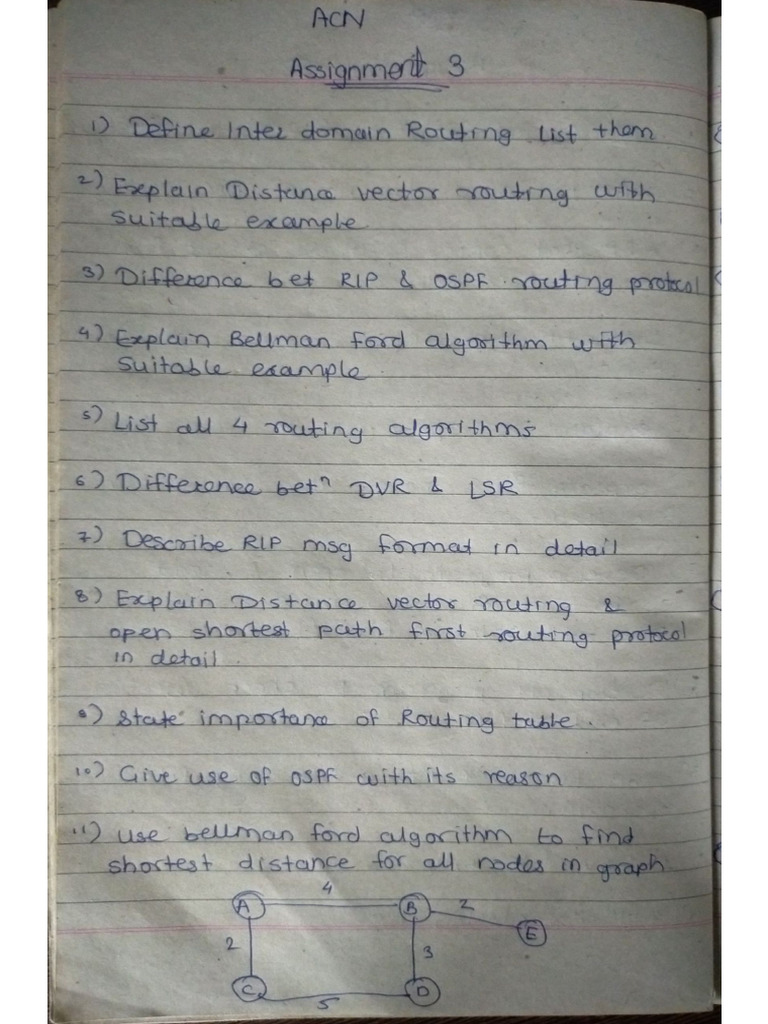 ACN
Assignment 3
1) Define Inter domain Routing List them
2) Explain Distance vector routing with
suitable example
3) Difference bet RIP & OSPF routing protocol
4) Explain Bellman Ford algorithm with
suitable example
5) List all 4 routing algorithms
6) Difference betn DVR & LSR
7) Describe RIP msg format in detail
8) Explain Distance vector routing &
open shortest path first routing protocol
in detail.
9) State importance of Routing table.
10) Give use of OSPF with its reason
11) use bellman ford algorithm to find
shortest distance for all nodes in graph
4
A B 2
E
2 3
C D
5